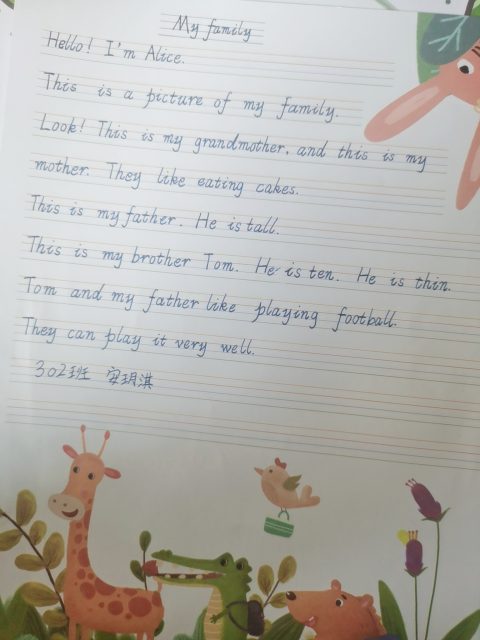 My family
Hello! I'm Alice.
This is a picture of my family.
Look! This is my grandmother, and this is my
mother. They like eating cakes.
This is my father. He is tall.
This is my brother Tom. He is ten. He is thin.
Tom and my father like playing football.
They can play it very well.
302班 安玥淇